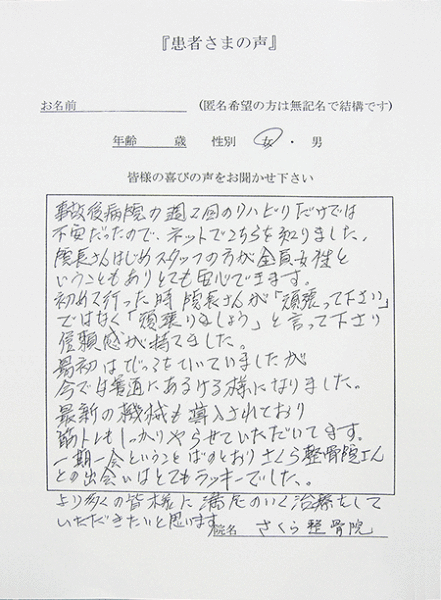 『患者さまの声』
お名前 (匿名希望の方は無記名で結構です)
年齢 歳 性別 女 ・ 男
皆様の喜びの声をお聞かせ下さい
事故後病院の週2回のリハビリだけでは
不安だったので、ネットでこちらを知りました。
院長さんはじめスタッフの方が全員女性と
いうこともありとても安心できます。
初めて行った時院長さんが「頑張って下さい」
ではなく「頑張りましょう」と言って下さり
信頼感が持てました。
最初はびっこをひいていましたが
今では普通にあるける様になりました。
最新の機械も導入されており
筋トレもしっかりやらせていただいてます。
一期一会ということばのとおりさくら整骨院さん
との出会いはとてもラッキーでした。
より多くの皆様に満足のいく治療をして
いただきたいと思います
院名 さくら整骨院